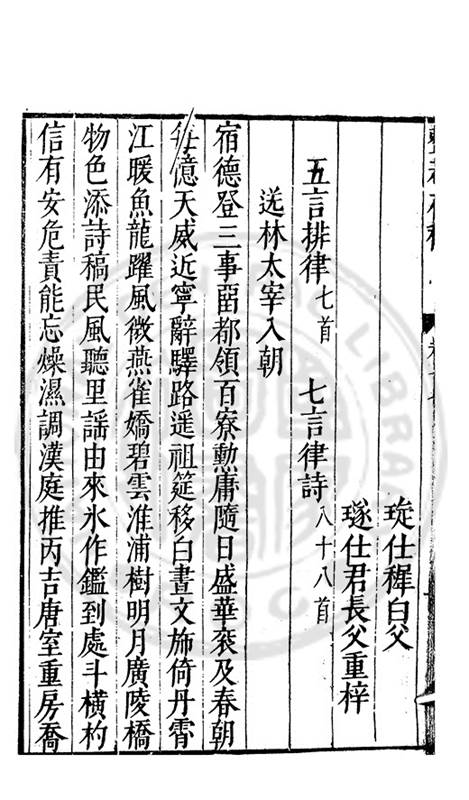 琁仕穉白父
璲仕君長父重梓
五言排律七首 七言律詩八十八首
送林太宰入朝
宿德登三事畱都領百寮勲庸隨日盛華衮及春朝
每憶天威近寧辭驛路遥祖筵移白晝文斾倚丹霄
江暖魚龍躍風微燕雀嬌碧雲淮浦樹明月廣陵橋
物色添詩稿民風聽里謡由來氷作鑑到處斗橫杓
信有安危責能忘燥濕調漢庭推丙吉唐室重房喬